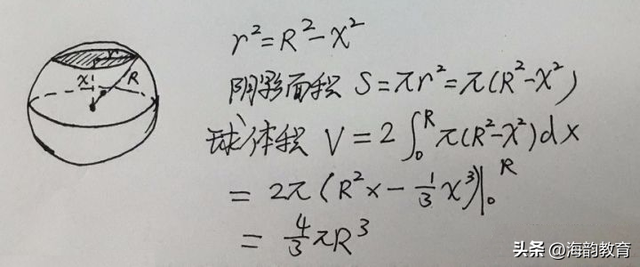 r
x
R
r²=R²-x²
阴影面积 S=πr²=π(R²-x²)
球体积 V=2∫₀ᴿπ(R²-x²)dx
=2π(R²x-⅓x³)|₀ᴿ
=4/3πR³
头条 @海韵教育